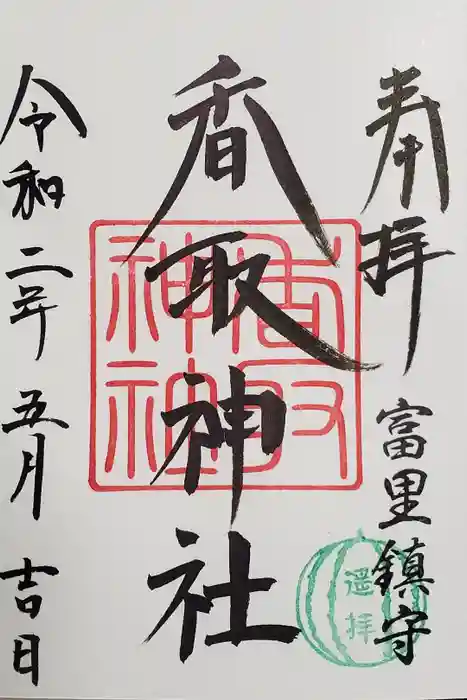 奉拝
富里鎮守
香取神社
令和二年五月吉日
香取
神社
遥拝